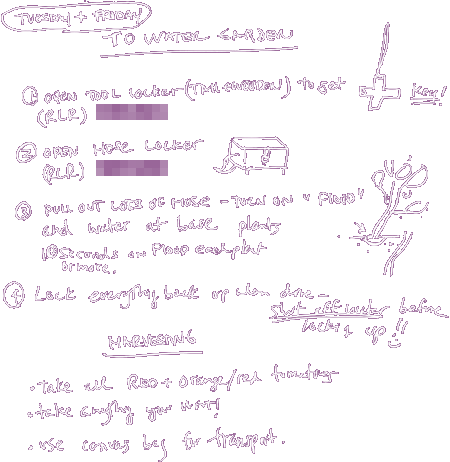 TUESDAY + FRIDAY
TO WATER GARDEN
① OPEN TOOL LOCKER (TAN CUPBOARD) to get key!
(RLR)
② OPEN HOSE LOCKER
(RLR)
③ PULL OUT LOTS OF HOSE - TURN ON "FLOOD"
and water at base plants
10 seconds on FLOOD each plant
or more.
④ Lock everything back up when done -
shut off water before
locking up!!
HARVESTING
• take all RED + Orange/red tomatoes
• take anything you want!
• use canvas bag for transport.